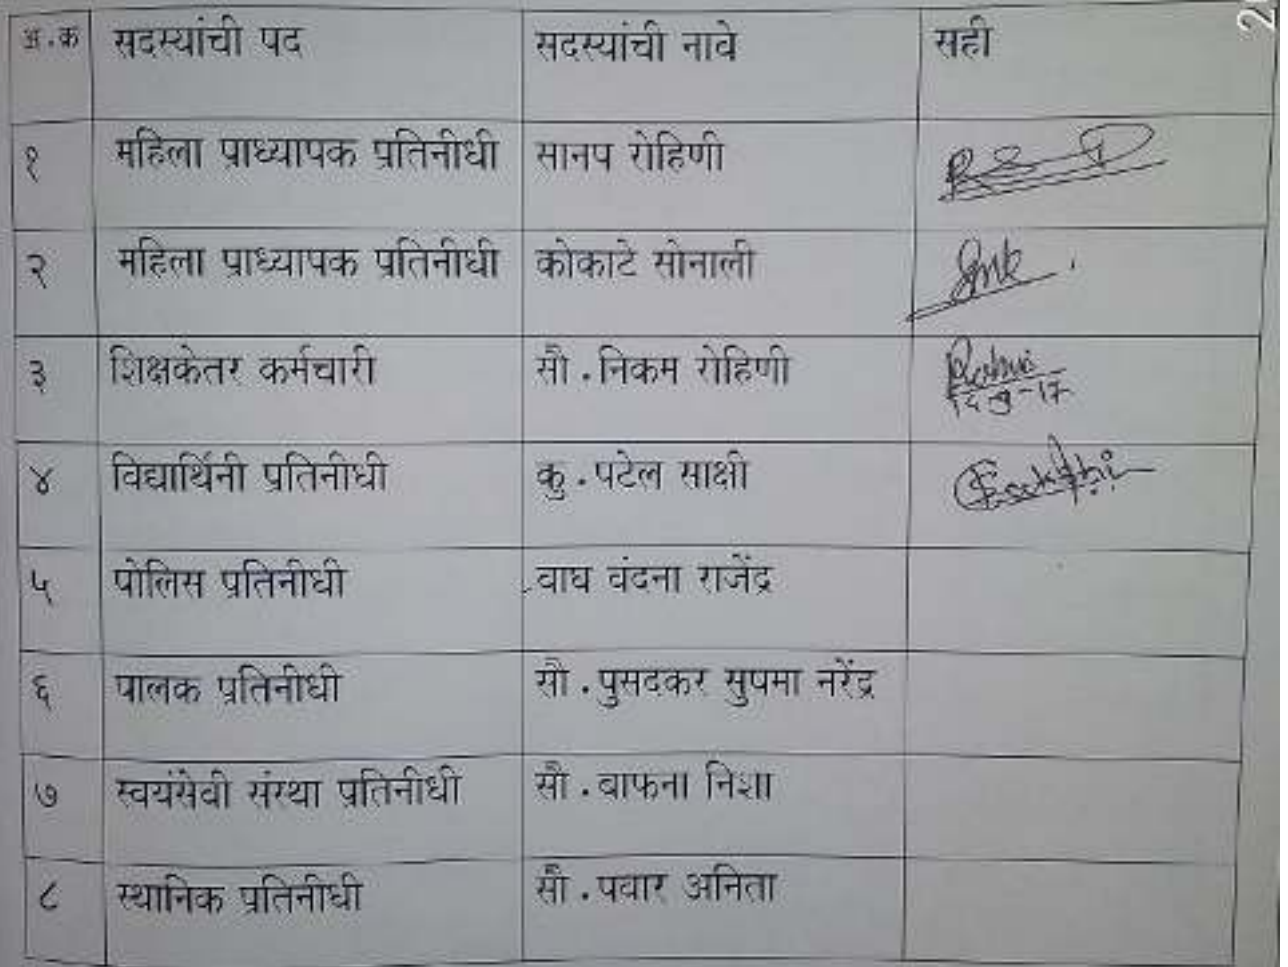 अ.क सदस्यांची पद सदस्यांची नावे सही
१ महिला प्राध्यापक प्रतिनीधी सानप रोहिणी
२ महिला प्राध्यापक प्रतिनीधी कोकाटे सोनाली
३ शिक्षकेतर कर्मचारी सौ.निकम रोहिणी
४ विद्यार्थिनी प्रतिनीधी कु.पटेल साक्षी
५ पोलिस प्रतिनीधी वाघ वंदना राजेंद्र
६ पालक प्रतिनीधी सौ.पुसदकर सुषमा नरेंद्र
७ स्वयंसेवी संस्था प्रतिनीधी सौ.बाफना निशा
८ स्थानिक प्रतिनीधी सौ.पवार अनिता